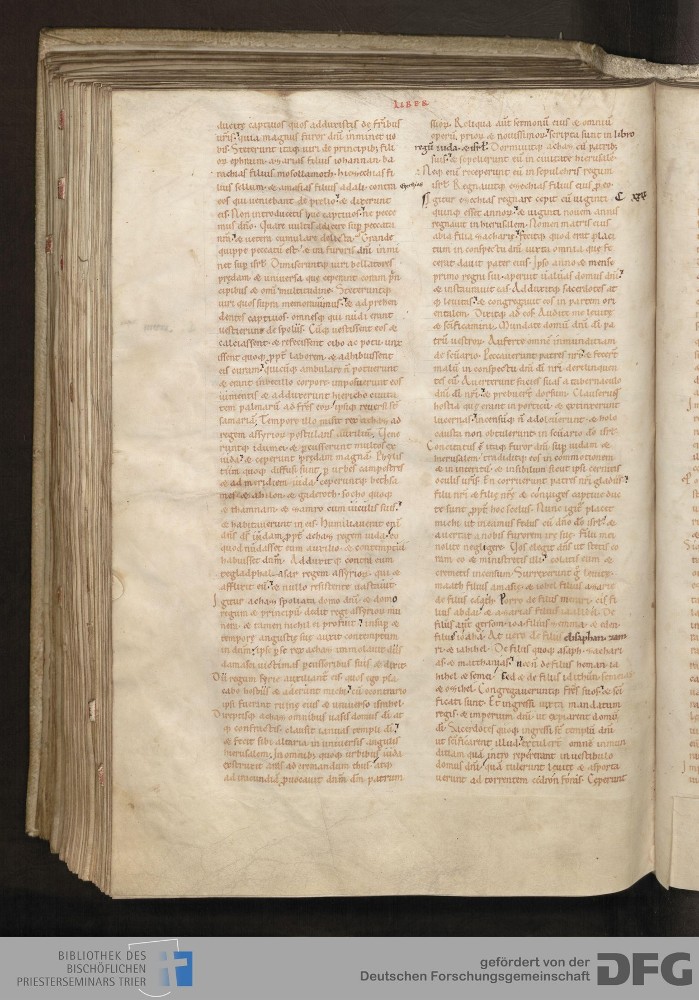 LIBER
ducite captiuos quos adduxistis de fr̄ibus
ur̄is. quia magnus furor dn̄i imminet uo
bis. Steterunt itaq; uiri de principib; fili
oꝝ ephraim. azarias filius iohannan. ba
rachias filius mosollamoth. hiezechias fi
lius sellum. & amasias filius adali. contra
eos qui ueniebant de prelio. & dixerunt
eis. Non introducetis huc captiuos. ne pecce
mus dn̄o. Quare uultis adicere sup̄ peccata
nr̄a. & uetera cumulare delicta? Grande
quippe peccatū est. & ira furoris dn̄i immi
net sup isrl̄. Dimiseruntq; uiri bellatores
p̄dam & uniuersa que ceperant coram p̄n
cipibus & omi multitudine. Steteruntq;
uiri quos supra memorauimus. & adprehen
dentes captiuos. omnesq; qui nudi erant
uestierunt de spoliis. Cūq; uestissent eos &
calciassent. & refecissent cibo ac potu. unx
issent quoq; ꝓpt̄ laborem. & adhibuissent
eis curam. quicūq; ambulare n̄ poterant
& erant inbecillo corpore. imposuerunt eos
iumentis & adduxerunt hiericho ciuita
tem palmarū ad fr̄es eoꝝ. ipsiq; reuersi st̄
samariā. Tempore illo misit rex achaz ad
regem assyrioꝝ postulans auxiliū. Uene
runtq; idumei & percusserunt multos ex
iuda. & ceperunt p̄dam magnā. Phylis
tiim quoq; diffusi sunt p̄ urbes campestres
& ad meridiem iuda. ceperuntq; bethsa
mes & ahilon & gaderoth. socho quoq;
& thamnam & gamzo cum uiculis suis.
& habitauerunt in eis. Humiliauerat eni
dn̄s iudam ꝓpt̄ achaz regem iuda. eo
quod nudasset eum auxilio. & contemptui
habuisset dnm̄. Adduxitq; contra eum
tegladphalasar regem assyrioꝝ. qui &
afflixit eū. & nullo resistente uastauit.
Igitur achaz spoliata domo dn̄i. & domo
regum & principū dedit regi assyrioꝝ mu
nera. & tamen nichil ei profuit. insup &
tempore angustię suę auxit contemptum
in dnm̄. ipse p̄ se rex achaz immolauit diis
damasci uictimas p̄cussoribus suis. & dixit.
Dii regum syrie auxiliant̄ eis. quos ego pla
cabo hostiis & aderunt michi. cū econtrario
ipsi fuerint ruinę eius & uniuerso israhel.
Direptisq; achaz omnibus uasis domus di. at
q; confractis. clausit ianuas templi di.
& fecit sibi altaria in uniuersis angulis
hierusalem. In omnib; quoq; urbibus iuda
extruxit aras ad cremandum thus. atq;
ad iracundiā ꝓuocauit dnm̄ dm̄ patrum
suoꝝ. Reliqua aut̄ sermonū eius & omniū
operū. prioꝝ & nouissimoꝝ scripta sunt in libro
regū iuda & isrl̄. Dormiuitq; achaz cū patrib;
suis. & sepelierunt eū in ciuitate hierusalē.
Neq; eni receperunt eū in sepulchris regum
isrl̄. Regnauitq; ezechias filius eius p̄ eo.
Igitur ezechias regnare cepit cū uiginti C. xxx
quinq; esset annoꝝ. & uiginti nouem annis
regnauit in hierusalem. Nomen matris eius
abia filia zacharie. Fecitq; quod erat placi
tum in conspectu dn̄i. iuxta omnia que fe
cerat dauit pater eius. Ipso anno & mense
primo regni sui. aperuit ualuas domus dn̄i.
& instaurauit eas. Adduxitq; sacerdotes at
q; leuitas. & congregauit eos in partem ori
entalem. Dixitq; ad eos. Audite me leuitę
& sc̄ificamini. Mundate domū dn̄i di pa
trū uestroꝝ. Auferte omnē inmundiciam
de sc̄uario. Peccauerunt patres nr̄i. & fecer̄t
malū in conspectu dn̄i di nr̄i derelinquen
tes eū. Auerterunt facies suas a tabernaculo
dn̄i di nr̄i. & prebuer̄t dorsum. Clauserunt
hostia que erant in porticu. & extinxerunt
lucernas. Incensūq; n̄ adoleuerunt. & holo
causta non obtulerunt in sc̄uario do isrl̄.
Concitatus ē itaq; furor dn̄i sup iudam &
hierusalem. tradiditq; eos in commotionem
& in interitū. & in sibilum sicut ipsi cernitis
oculis ur̄is. En corruerunt patres nr̄i gladiis.
filii nr̄i & filię nr̄ę & coniuges captiue duc
te sunt ꝓpt̄ hoc scelus. Nunc igit̄ placet
michi. ut ineamus fedus cū dn̄o do isrl̄. &
auertat a nobis furorem irę suę. Filii mei
nolite neglegere. Uos elegit dn̄s ut stetis co
ram eo & ministretis illi. colatis eum &
cremetis incensum. Surrexerunt g̊ leuitę.
maath filius amasię. & iohel filius azarie
de filiis caath. Porro de filiis merari. cis fi
lius abdai. & azarias filius ialaleel. De
filiis aut̄ gersom. ioa filius zemma. & eden
filius ioaha. At uero de filiis elisaphan. zam
ri. & iahihel. De filiis quoq; asaph. zachari
as. & matthanias. necn̄ de filiis heman. ia
hihel & semei. Sed & de filiis idithun. semeias
& ozihel. Congregaueruntq; fr̄es suos. & sc̄i
ficati sunt. Et ingressi iuxta mandatum
regis. & imperium dn̄i. ut expiarent domū
di. Sacerdotes quoq; ingressi st̄ templū dn̄i
ut sc̄ificarent illud. extulerunt omnē inmun
ditiam quā intro reppererant in uestibulo
domus dn̄i. quā tulerunt leuite & asporta
uerunt ad torrentem cedron foras. Ceperunt
BIBLIOTHEK DES
BISCHÖFLICHEN
PRIESTERSEMINARS TRIER
gefördert von der
Deutschen Forschungsgemeinschaft
DFG